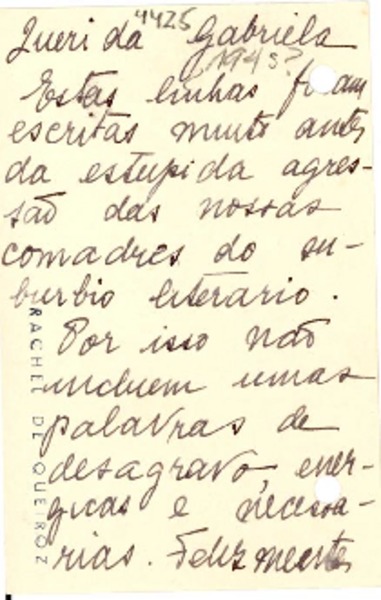 4425
Querida Gabriela
194s?
Estas linhas foram
escritas muito antes
da estupida agres-
são das nossas
comadres do su-
burbio literario.
Por isso não
incluem umas
palavras de
desagravo, ener-
gicas e necessa-
rias. Felizmente
RACHEL DE QUEIROZ